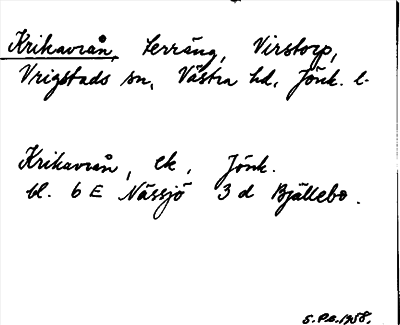 Krikavrån, terräng, Virstorp,
Vrigstads sn, Västra hd, Jönk. l.
Krikavrån, ek, Jönk.
bl. 6 E Nässjö 3 d Bjällebo.
S.P.B. 1958.